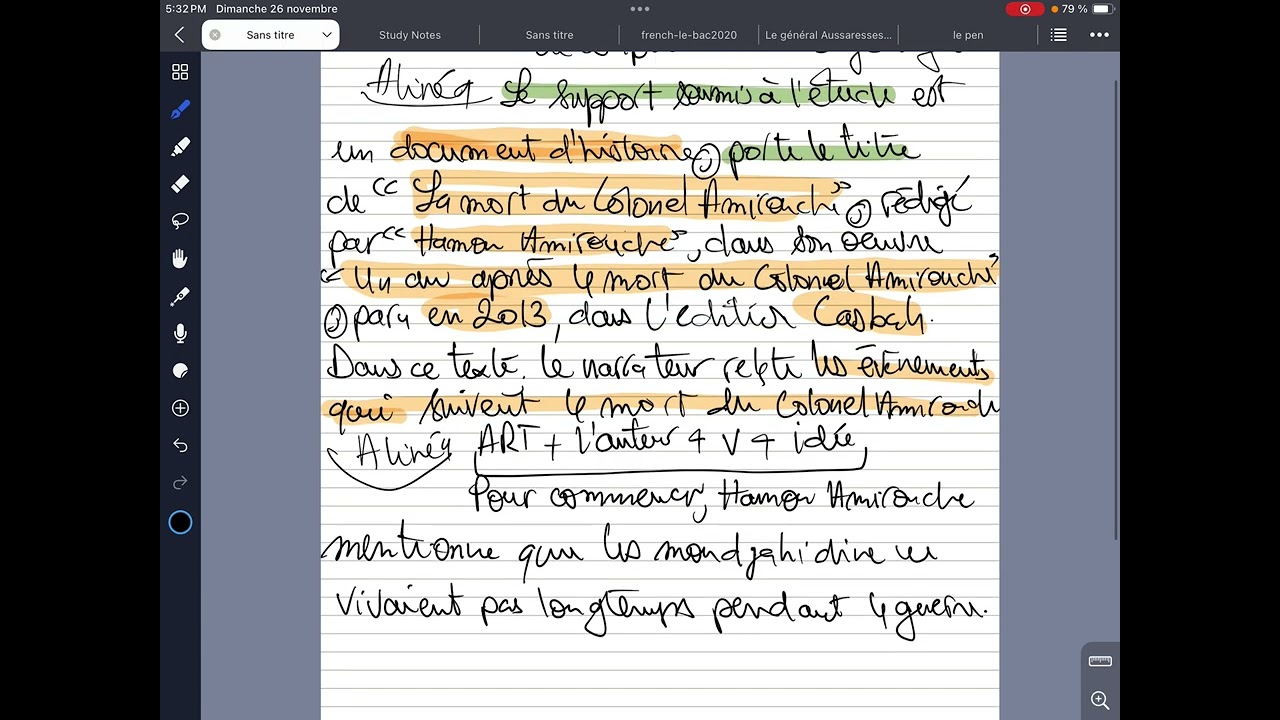 5:32 PM Dimanche 26 novembre
79 %
Sans titre
Study Notes
Sans titre
french-le-bac2020
Le général Aussaresses...
le pen
Alinéa Le support soumis à l'étude est
un document d'histoire, porte le titre
de "La mort du Colonel Amirouche", rédigé
par "Hamou Amirouche", dans son oeuvre
"Un an après la mort du Colonel Amirouche"
, paru en 2013, dans l'edition Casbah.
Dans ce texte, le narrateur relate les évènements
qui suivent la mort du Colonel Amirouche
Alinéa ART + l'auteur + V + idée
Pour commencer, Hamou Amirouche
mentionne que les moudjahidine ne
vivaient pas longtemps pendant la guerre.